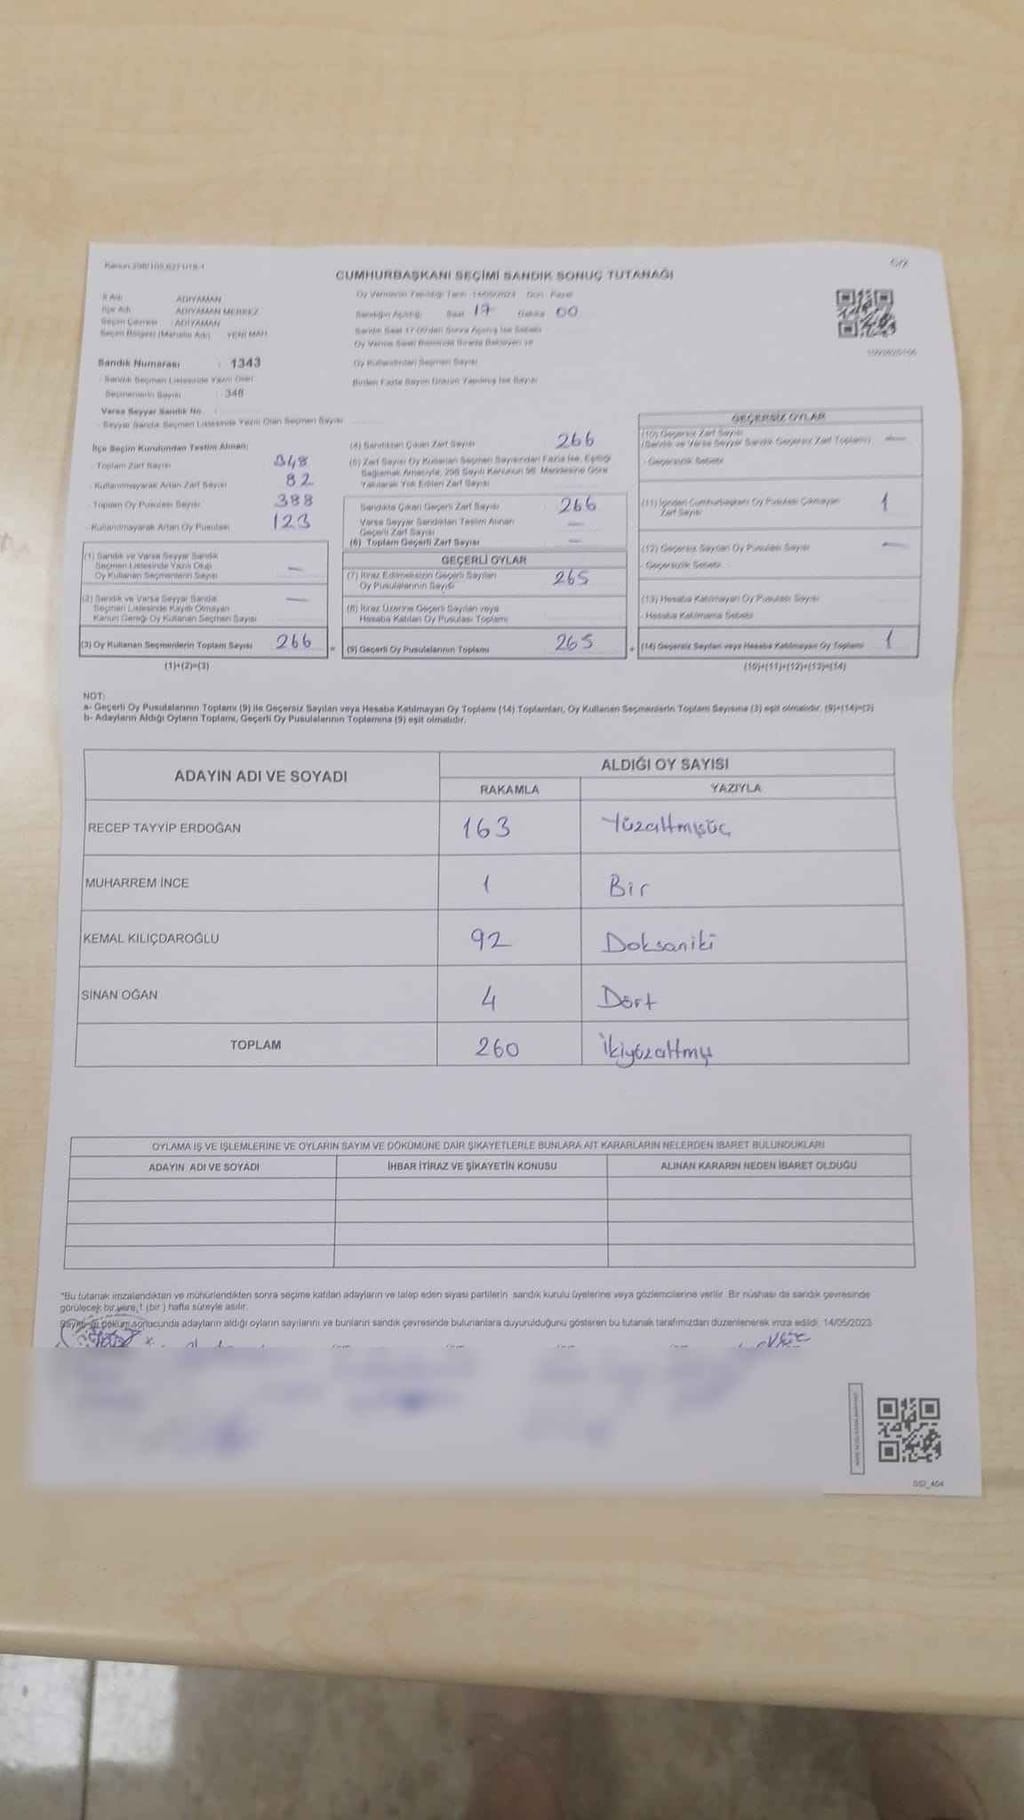 CUMHURBAŞKANI SEÇİMİ SANDIK SONUÇ TUTANAĞI
İl Adı ADIYAMAN
İlçe Adı ADIYAMAN MERKEZ
Seçim Çevresi : ADIYAMAN
Seçim Bölgesi (Mahalle Adı) YENİ MAH.
Sandık Numarası : 1343
Sandık Seçmen Listesinde Yazılı Olan
Seçmenlerin Sayısı : 348
Varsa Seyyar Sandık No
Seyyar Sandık Seçmen Listesinde Yazılı Olan Seçmen Sayısı
Oy Vermenin Yapıldığı Tarih : 14/05/2023 Gün : Pazar
Sandığın Açıldığı: Saat 17 Dakika 00
Oy Kullandırılan Seçmen Sayısı
Birden Fazla Sayım Döküm Yapılmış İse Sayısı
İlçe Seçim Kurulundan Teslim Alınan;
Toplam Zarf Sayısı 348
Kullanılmayarak Artan Zarf Sayısı 82
Toplam Oy Pusulası Sayısı 388
Kullanılmayarak Artan Oy Pusulası 123
(1) Sandık ve Varsa Seyyar Sandık
Seçmen Listesinde Yazılı Olup
Oy Kullanan Seçmenlerin Sayısı —
(2) Sandık ve Varsa Seyyar Sandık
Seçmen Listesinde Kayıtlı Olmayan
Kanun Gereği Oy Kullanan Seçmen Sayısı —
(3) Oy Kullanan Seçmenlerin Toplam Sayısı 266 =
(1)+(2)=(3)
(4) Sandıktan Çıkan Zarf Sayısı 266
(5) Zarf Sayısı Oy Kullanan Seçmen Sayısından Fazla ise, Eşitliği
Sağlamak Amacıyla, 298 Sayılı Kanunun 98. Maddesine Göre
Yakılarak Yok Edilen Zarf Sayısı —
Sandıkta Çıkan Geçerli Zarf Sayısı 266
Varsa Seyyar Sandıktan Teslim Alınan
Geçerli Zarf Sayısı —
(6) Toplam Geçerli Zarf Sayısı —
GEÇERLİ OYLAR
(7) İtiraz Edilmeksizin Geçerli Sayılan
Oy Pusulalarının Sayısı 265
(8) İtiraz Üzerine Geçerli Sayılan veya
Hesaba Katılan Oy Pusulası Toplamı
(9) Geçerli Oy Pusulalarının Toplamı 265 +
GEÇERSİZ OYLAR
(10) Geçersiz Zarf Sayısı
(Sandık ve Varsa Seyyar Sandık Geçersiz Zarf Toplamı) —
Geçersizlik Sebebi
(11) İçinden Cumhurbaşkanı Oy Pusulası Çıkmayan
Zarf Sayısı 1
(12) Geçersiz Sayılan Oy Pusulası Sayısı —
Geçersizlik Sebebi
(13) Hesaba Katılmayan Oy Pusulası Sayısı
Hesaba Katılmama Sebebi
(14) Geçersiz Sayılan veya Hesaba Katılmayan Oy Toplamı 1
(10)+(11)+(12)+(13)=(14)
NOT:
a- Geçerli Oy Pusulalarının Toplamı (9) ile Geçersiz Sayılan veya Hesaba Katılmayan Oy Toplamı (14) Toplamları, Oy Kullanan Seçmenlerin Toplam Sayısına (3) eşit olmalıdır. (9)+(14)=(3)
b- Adayların Aldığı Oyların Toplamı, Geçerli Oy Pusulalarının Toplamına (9) eşit olmalıdır.
ADAYIN ADI VE SOYADI
ALDIĞI OY SAYISI
RAKAMLA YAZIYLA
RECEP TAYYİP ERDOĞAN 163 Yüzaltmışüç
MUHARREM İNCE 1 Bir
KEMAL KILIÇDAROĞLU 92 Doksaniki
SİNAN OĞAN 4 Dört
TOPLAM 260 İkiyüzaltmış
OYLAMA İŞ VE İŞLEMLERİNE VE OYLARIN SAYIM VE DÖKÜMÜNE DAİR ŞİKAYETLERLE BUNLARA AİT KARARLARIN NELERDEN İBARET BULUNDUKLARI
ADAYIN ADI VE SOYADI İHBAR İTİRAZ VE ŞİKAYETİN KONUSU ALINAN KARARIN NEDEN İBARET OLDUĞU
*Bu tutanak imzalandıktan ve mühürlendikten sonra seçime katılan adayların ve talep eden siyasi partilerin sandık kurulu üyelerine veya gözlemcilerine verilir. Bir nüshası da sandık çevresinde
görülecek bir yere 1 (bir) hafta süreyle asılır.
Sayım ve döküm sonucunda adayların aldığı oyların sayılarını ve bunların sandık çevresinde bulunanlara duyurulduğunu gösteren bu tutanak tarafımızdan düzenlenerek imza edildi. 14/05/2023